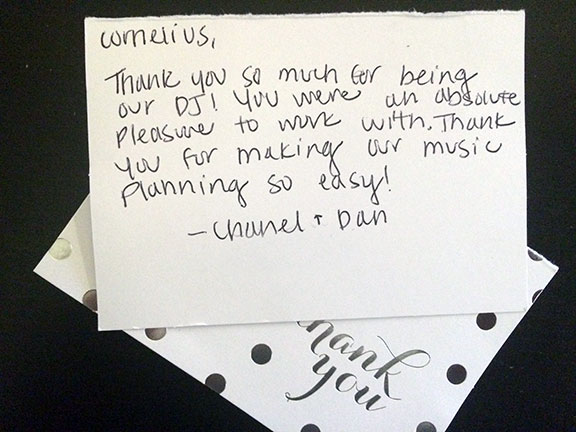 cornelius,
Thank you so much for being
our DJ! You were an absolute
pleasure to work with. Thank
you for making our music
planning so easy!
- Chanel + Dan
thank
you